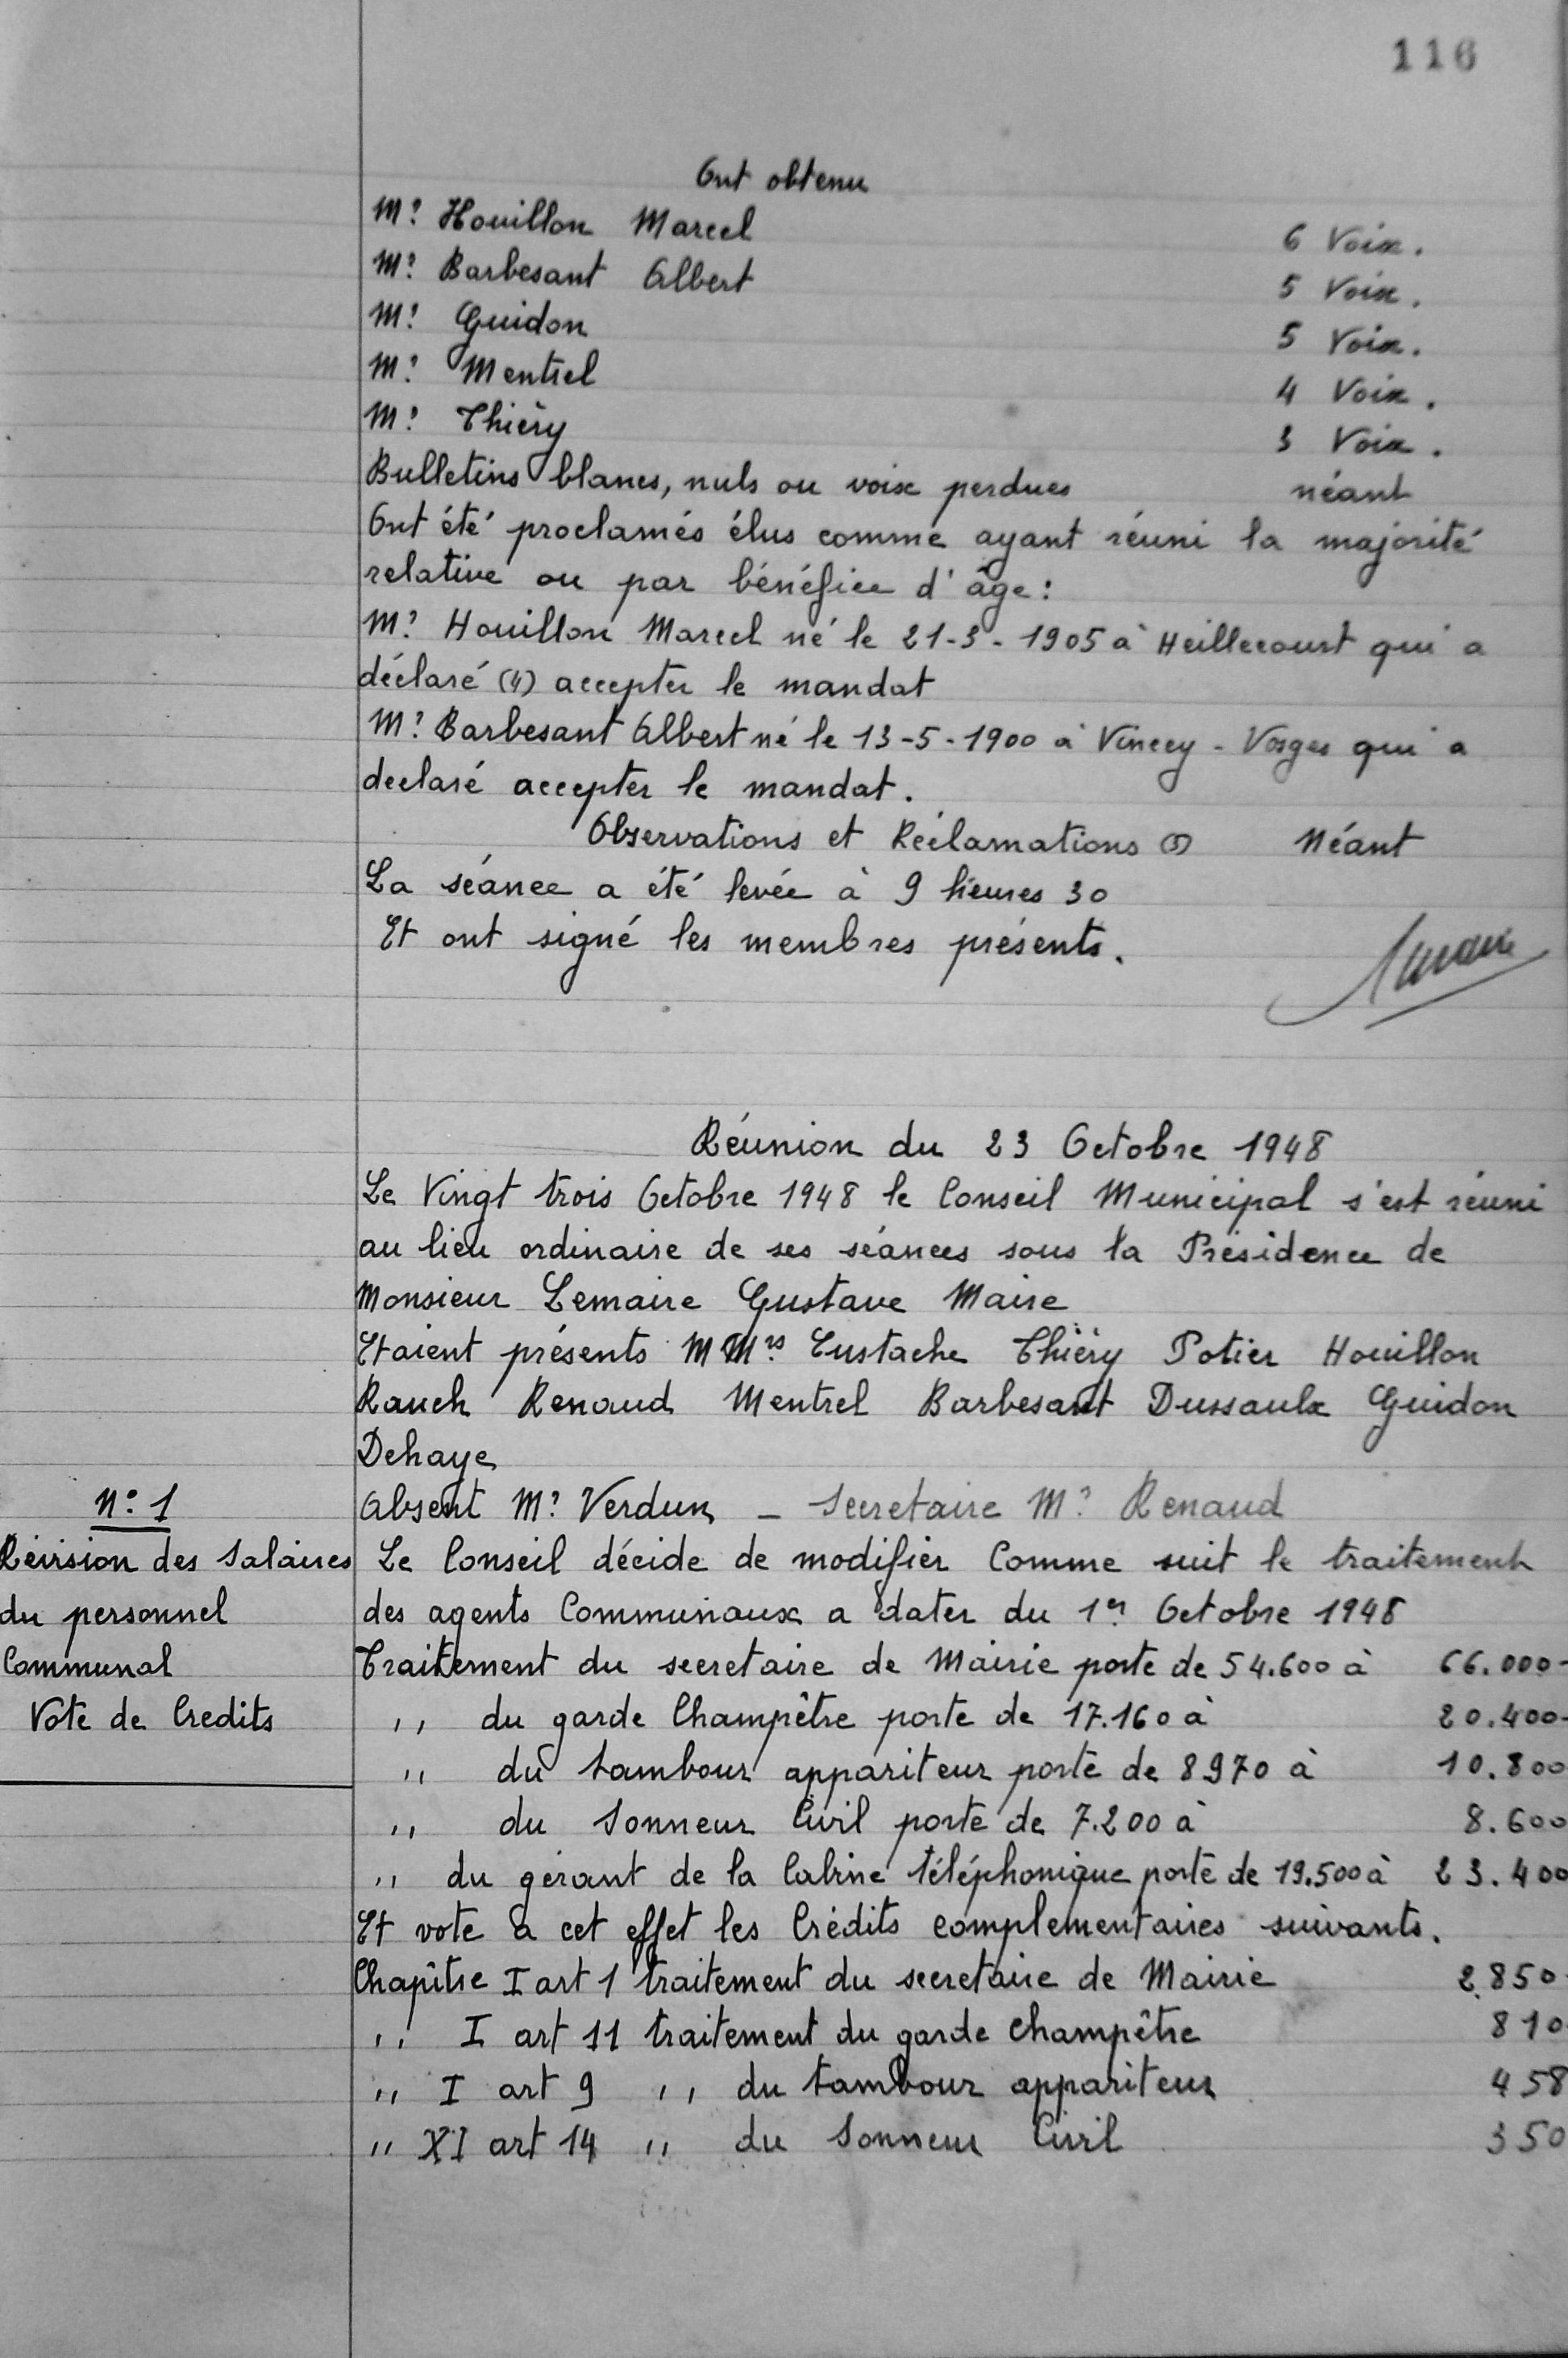 116
Ont obtenu
Mr Houillon Marcel 6 Voix.
Mr Barbesant Albert 5 Voix.
Mr Guidon 5 Voix.
Mr Mentrel 4 Voix.
Mr Thiéry 3 Voix.
Bulletins blancs, nuls ou voix perdues néant
Ont été proclamés élus comme ayant réuni la majorité
relative ou par bénéfice d'âge :
Mr Houillon Marcel né le 21-3-1905 à Heillecourt qui a
déclaré (4) accepter le mandat
Mr Barbesant Albert né le 13-5-1900 à Vincey - Vosges qui a
declaré accepter le mandat.
Observations et Réclamations (5) Néant
La séance a été levée à 9 heures 30
Et ont signé les membres présents.
Réunion du 23 Octobre 1948
Le Vingt trois Octobre 1948 le Conseil Municipal s'est réuni
au lieu ordinaire de ses séances sous la Présidence de
Monsieur Lemaire Gustave Maire
Etaient présents MMrs Eustache Thiéry Potier Houillon
Rauch Renaud Mentrel Barbesant Dussaulx Guidon
Dehaye
Absent Mr Verdun - Secretaire Mr Renaud
N° 1
Révision des Salaires
du personnel
Communal
Vote de Credits
Le Conseil décide de modifier Comme suit le traitement
des agents Communaux a dater du 1er Octobre 1948
Traitement du secretaire de Mairie porté de 54.600 à 66.000-
,, du garde Champêtre porte de 17.160 à 20.400-
,, du tambour appariteur porté de 8970 à 10.800
,, du Sonneur Civil porté de 7.200 à 8.600
,, du gérant de la Cabine téléphonique porté de 19.500 à 23.400
Et vote à cet effet les Crédits complementaires suivants.
Chapître I art 1 traitement du secretaire de Mairie 2.850-
,, I art 11 traitement du garde champêtre 810
,, I art 9 ,, du tambour appariteur 458
,, XI art 14 ,, du Sonneur Civil 350